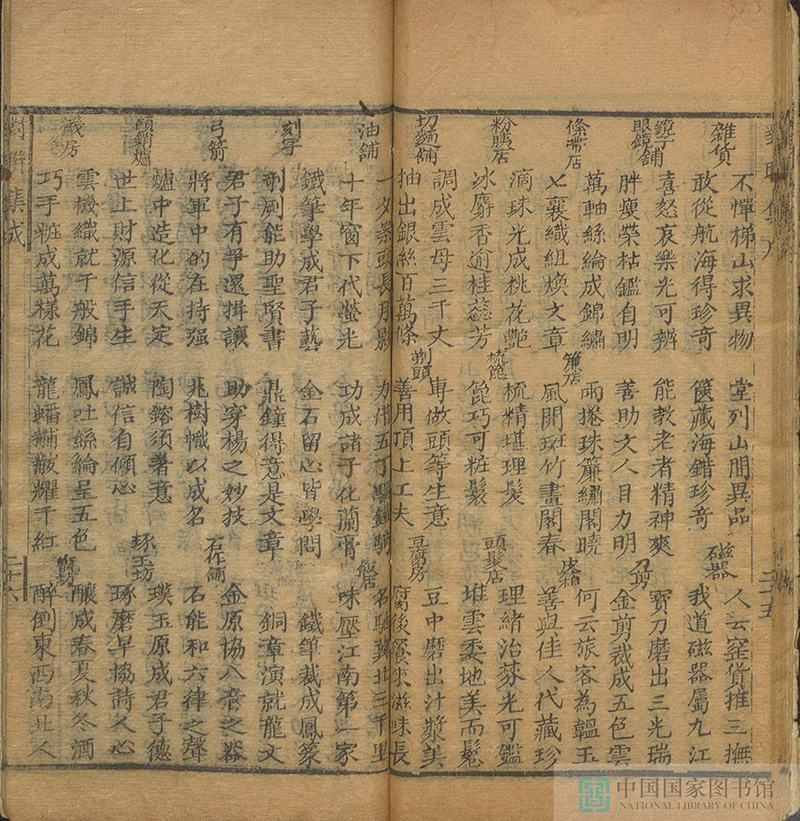 雜貨
不憚梯山求異物
堂列山間異品
磁器
人云窑貨推三撫
敢從航海得珍奇
篋藏海錯珍奇
我道磁器屬九江
眼鏡舖
喜怒哀樂光可辨
能教老者精神爽
刀剪
寶刀磨出三光瑞
胖瘦榮枯鑑自明
善助文人目力明
金剪裁成五色雲
絛帶店
萬軸絲綸成錦繡
簾店
雨捲珠簾繡閣曉
皮箱
何云旅客為韞玉
七襄織組煥文章
風開斑竹畫閣春
善與佳人代藏珍
粉胰店
滴珠光成桃花艷
梳篦
梳精堪理髮
頭髮店
理緒治棼光可鑑
冰麝香逾桂蕊芳
篦巧可粧鬟
堆雲委地美而鬆
切麵舖
調成雲母三千丈
剃頭
專做頭等生意
豆腐房
豆中磨出汁漿美
抽出銀絲百萬條
善用頂上工夫
腐後餐來滋味長
三十五
油舖
一夕案頭長月影
力借五丁驅鐵騎
名馳冀北三千里
十年窗下代螢光
功成諸子化蘭膏
味壓江南第一家
刻字
鐵筆學成君子藝
金石留心皆學問
鐵筆裁成鳳篆
剞劂能助聖賢書
鼎鐘得意是文章
銅章演就龍文
弓箭
君子有爭還揖讓
助穿楊之妙技
石作舖
金原協八音之器
將軍中的在持强
兆樹幟以成名
石能和六律之聲
傾銷爐
爐中造化從天定
陶鎔須著意
琢玉坊
璞玉原成君子德
世上財源信手生
誠信有傾心
琢磨早協詩人心
機房
雲機織就千般錦
鳳吐絲綸呈五色
釀成春夏秋冬酒
巧手粧成萬樣花
龍蟠黼黻耀千紅
醉倒東西南北人
對聯集成
三十六
中国国家图书馆
NATIONAL LIBRARY OF CHINA